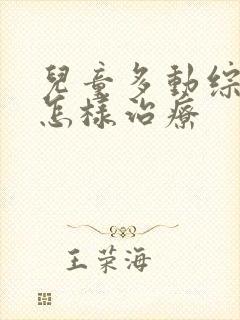 兒童多動綜
怎樣治療
王荣海